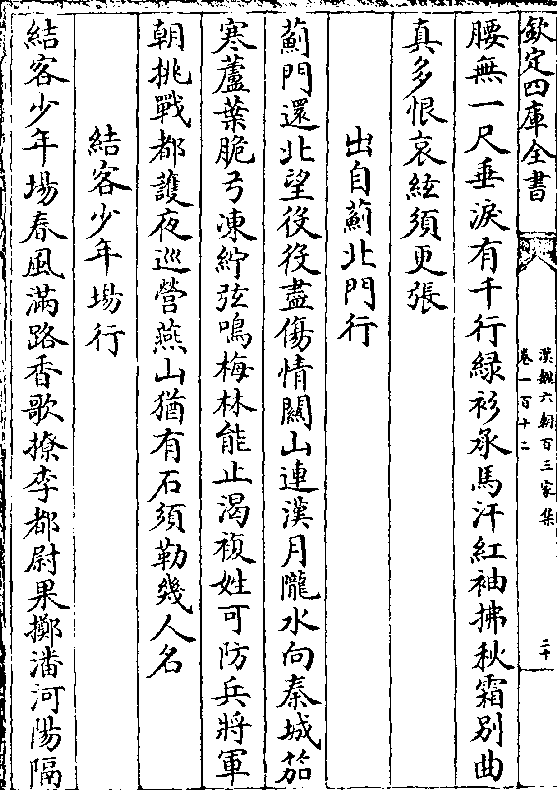 欽定四庫全書
漢魏六朝百三家集
卷一百十二
二十
腰無一尺垂淚有千行綠衫承馬汗紅袖拂秋霜別曲
真多恨哀絃須更張
出自薊北門行
薊門還北望役役盡傷情關山連漢月隴水向秦城笳
寒蘆葉脆弓凍紵弦鳴梅林能止渴複姓可防兵將軍
朝挑戰都護夜巡營燕山猶有石須勒幾人名
結客少年場行
結客少年場春風滿路香歌撩李都尉果擲潘河陽隔